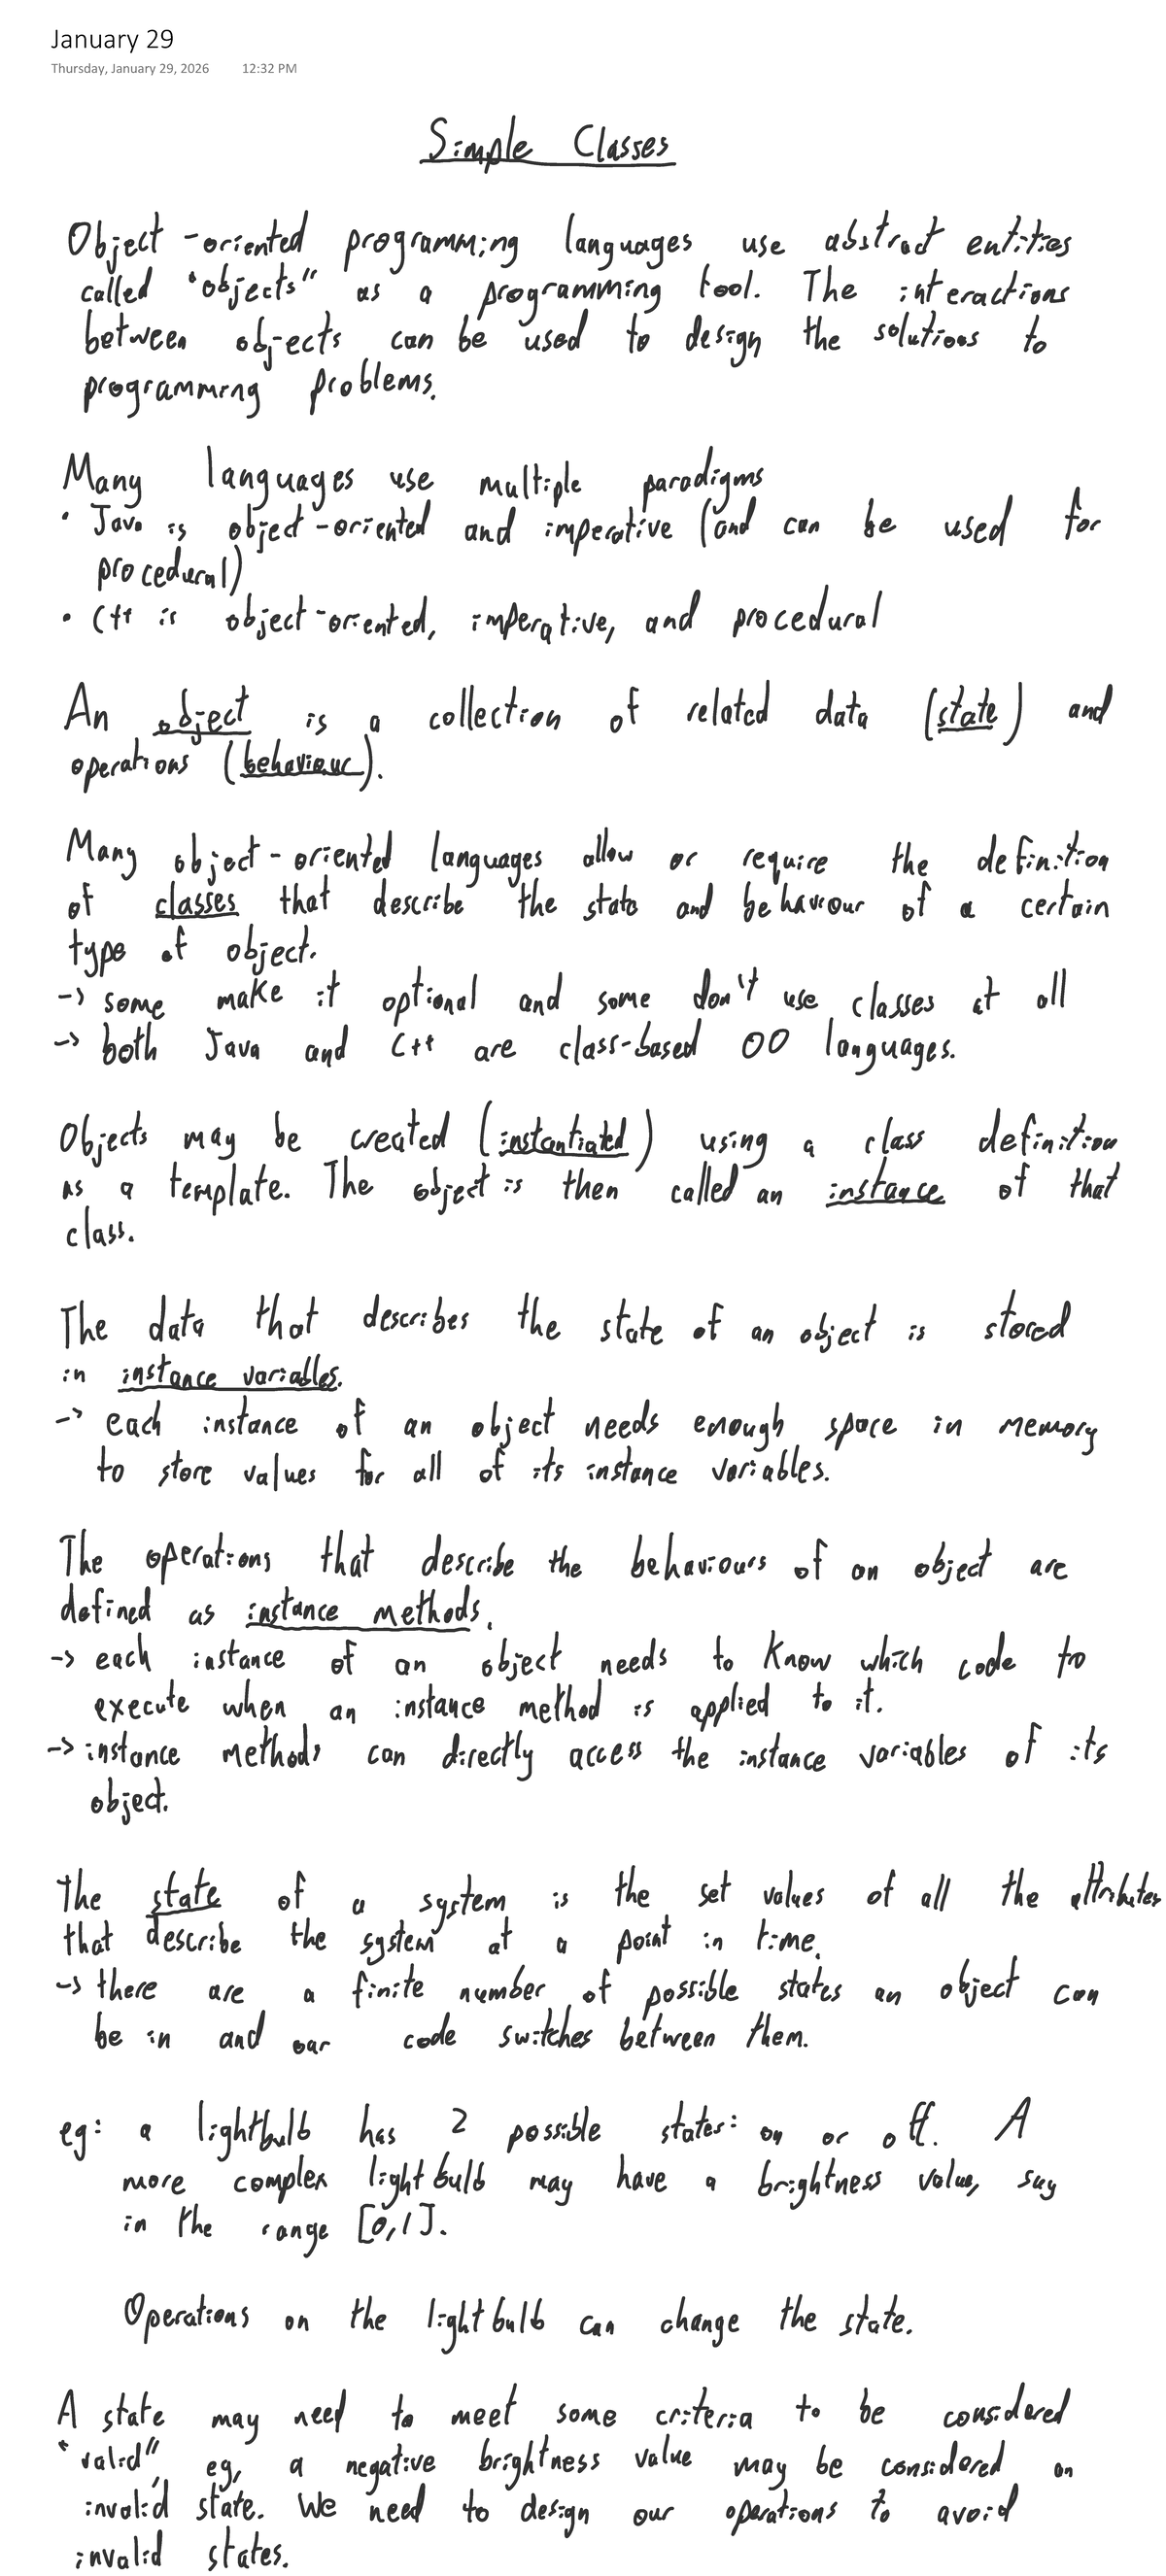 January 29
Thursday, January 29, 2026 12:32 PM
Simple Classes
Object-oriented programming languages use abstract entities
called "objects" as a programming tool. The interactions
between objects can be used to design the solutions to
programming problems.
Many languages use multiple paradigms
• Java is object-oriented and imperative (and can be used for
procedural)
• C++ is object-oriented, imperative, and procedural
An object is a collection of related data (state) and
operations (behaviour).
Many object-oriented languages allow or require the definition
of classes that describe the state and behaviour of a certain
type of object.
-> some make it optional and some don't use classes at all
-> both Java and C++ are class-based OO languages.
Objects may be created (instantiated) using a class definition
as a template. The object is then called an instance of that
class.
The data that describes the state of an object is stored
in instance variables.
-> each instance of an object needs enough space in memory
to store values for all of its instance variables.
The operations that describe the behaviours of an object are
defined as instance methods.
-> each instance of an object needs to know which code to
execute when an instance method is applied to it.
-> instance methods can directly access the instance variables of its
object.
The state of a system is the set values of all the attributes
that describe the system at a point in time.
-> there are a finite number of possible states an object can
be in and our code switches between them.
eg: a lightbulb has 2 possible states: on or off. A
more complex lightbulb may have a brightness value, say
in the range [0,1].
Operations on the lightbulb can change the state.
A state may need to meet some criteria to be considered
"valid", eg, a negative brightness value may be considered an
invalid state. We need to design our operations to avoid
invalid states.